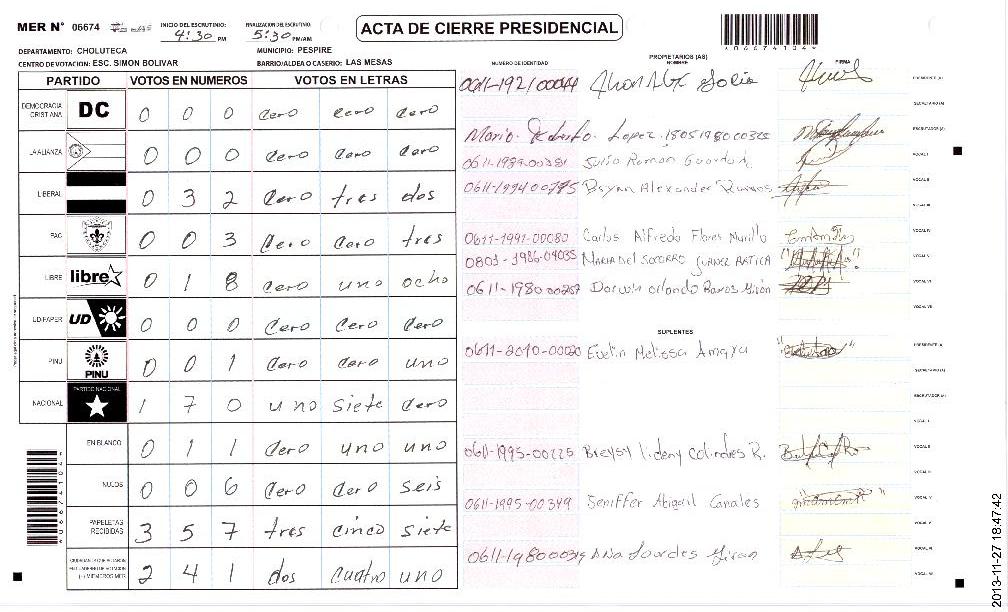 MER N° 06674 INICIO DEL ESCRUTINIO: 4:30 PM FINALIZACION DEL ESCRUTINIO: 5:30 PM/AM
ACTA DE CIERRE PRESIDENCIAL
DEPARTAMENTO: CHOLUTECA MUNICIPIO: PESPIRE
CENTRO DE VOTACION: ESC. SIMON BOLIVAR BARRIO/ALDEA O CASERIO: LAS MESAS
PARTIDO VOTOS EN NUMEROS VOTOS EN LETRAS
DEMOCRACIA CRISTIANA DC 0 0 0 Cero Cero Cero
LA ALIANZA 0 0 0 Cero Cero Cero
LIBERAL 0 3 2 Cero tres dos
PAC 0 0 3 Cero Cero tres
LIBRE libre 0 1 8 Cero uno ocho
UD/FAPER UD 0 0 0 Cero Cero Cero
PINU PINU 0 0 1 Cero Cero uno
NACIONAL PARTIDO NACIONAL 1 7 0 uno siete Cero
EN BLANCO 0 1 1 Cero uno uno
NULOS 0 0 6 Cero Cero seis
PAPELETAS RECIBIDAS 3 5 7 tres cinco siete
2 4 1 dos cuatro uno
NUMERO DE IDENTIDAD PROPIETARIOS (AS) NOMBRE FIRMA
PRESIDENTE (A)
SECRETARIO (A)
Mario Roberto Lopez 1805198000325 ESCRUTADOR (A)
Julio Ramon VOCAL I
Bryan Alexander VOCAL II
VOCAL III
0611-1991-00080 Carlos Alfredo Flores Murillo VOCAL IV
0801-1986-04035 MARIA DEL SOCORRO VOCAL V
0611-1980 00267 Darwin Orlando VOCAL VI
VOCAL VII
SUPLENTES
0611-2010-00020 Evelin Melissa Amaya PRESIDENTE (A)
SECRETARIO (A)
ESCRUTADOR (A)
VOCAL I
0611-1995-00225 Breysy Lideny Colindres R. VOCAL II
VOCAL III
0611-1995-00349 Jeniffer Abigail Canales VOCAL IV
VOCAL V
Ana Lourdes VOCAL VI
VOCAL VII
06674104
2013-11-27 18:47:42